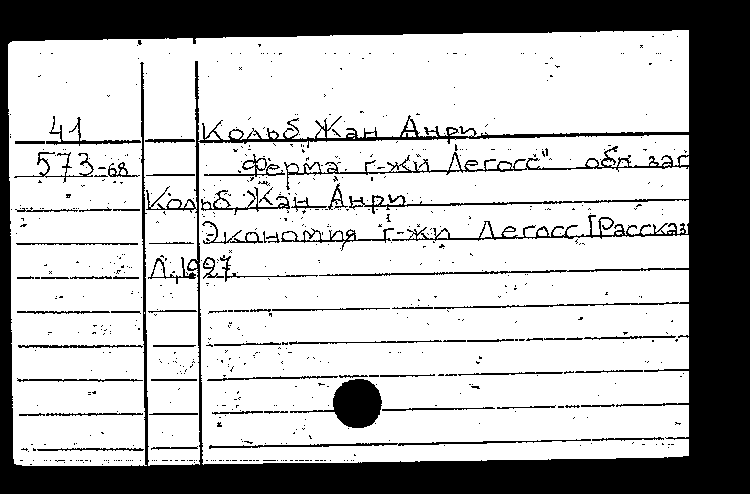 41 Кольб, Жан Анри.
573-68 „Ферма г-жи Легосс" обл. заг
Кольб, Жан Анри
Экономия г-жи Легосс. [Рассказы
Л., 1927.